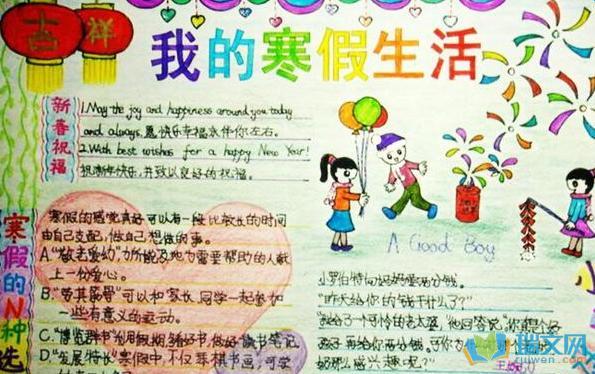 吉祥
我的寒假生活
新春祝福
1.May the joy and happiness around you today
and always.愿快乐幸福永伴你左右。
2.With best wishes for a happy New Year!
祝新年快乐,并致以良好的祝福。
寒假的N种选
寒假的感觉真好可以有一段比较长的时间
由自己支配,做自己想做的事。
A."敬老爱幼"力所能及地为需要帮助的人献
上一份爱心。
B."苦其筋骨"可以和家长、同学一起参加
一些有意义的运动。
C."博览群书"利用假期,多看好书,做好读书笔记
D."发展特长"寒假中,不仅琴棋书画,可学
A Good Boy
小罗伯特向妈妈要两分钱。
"昨天给你的钱干什么了?"
"我给了一个可怜的老太婆,"他回答说,"你真是个好
孩子,再给你两分钱。可你为
奶那么感兴趣呢?"
瑞文网
ruiwen.com